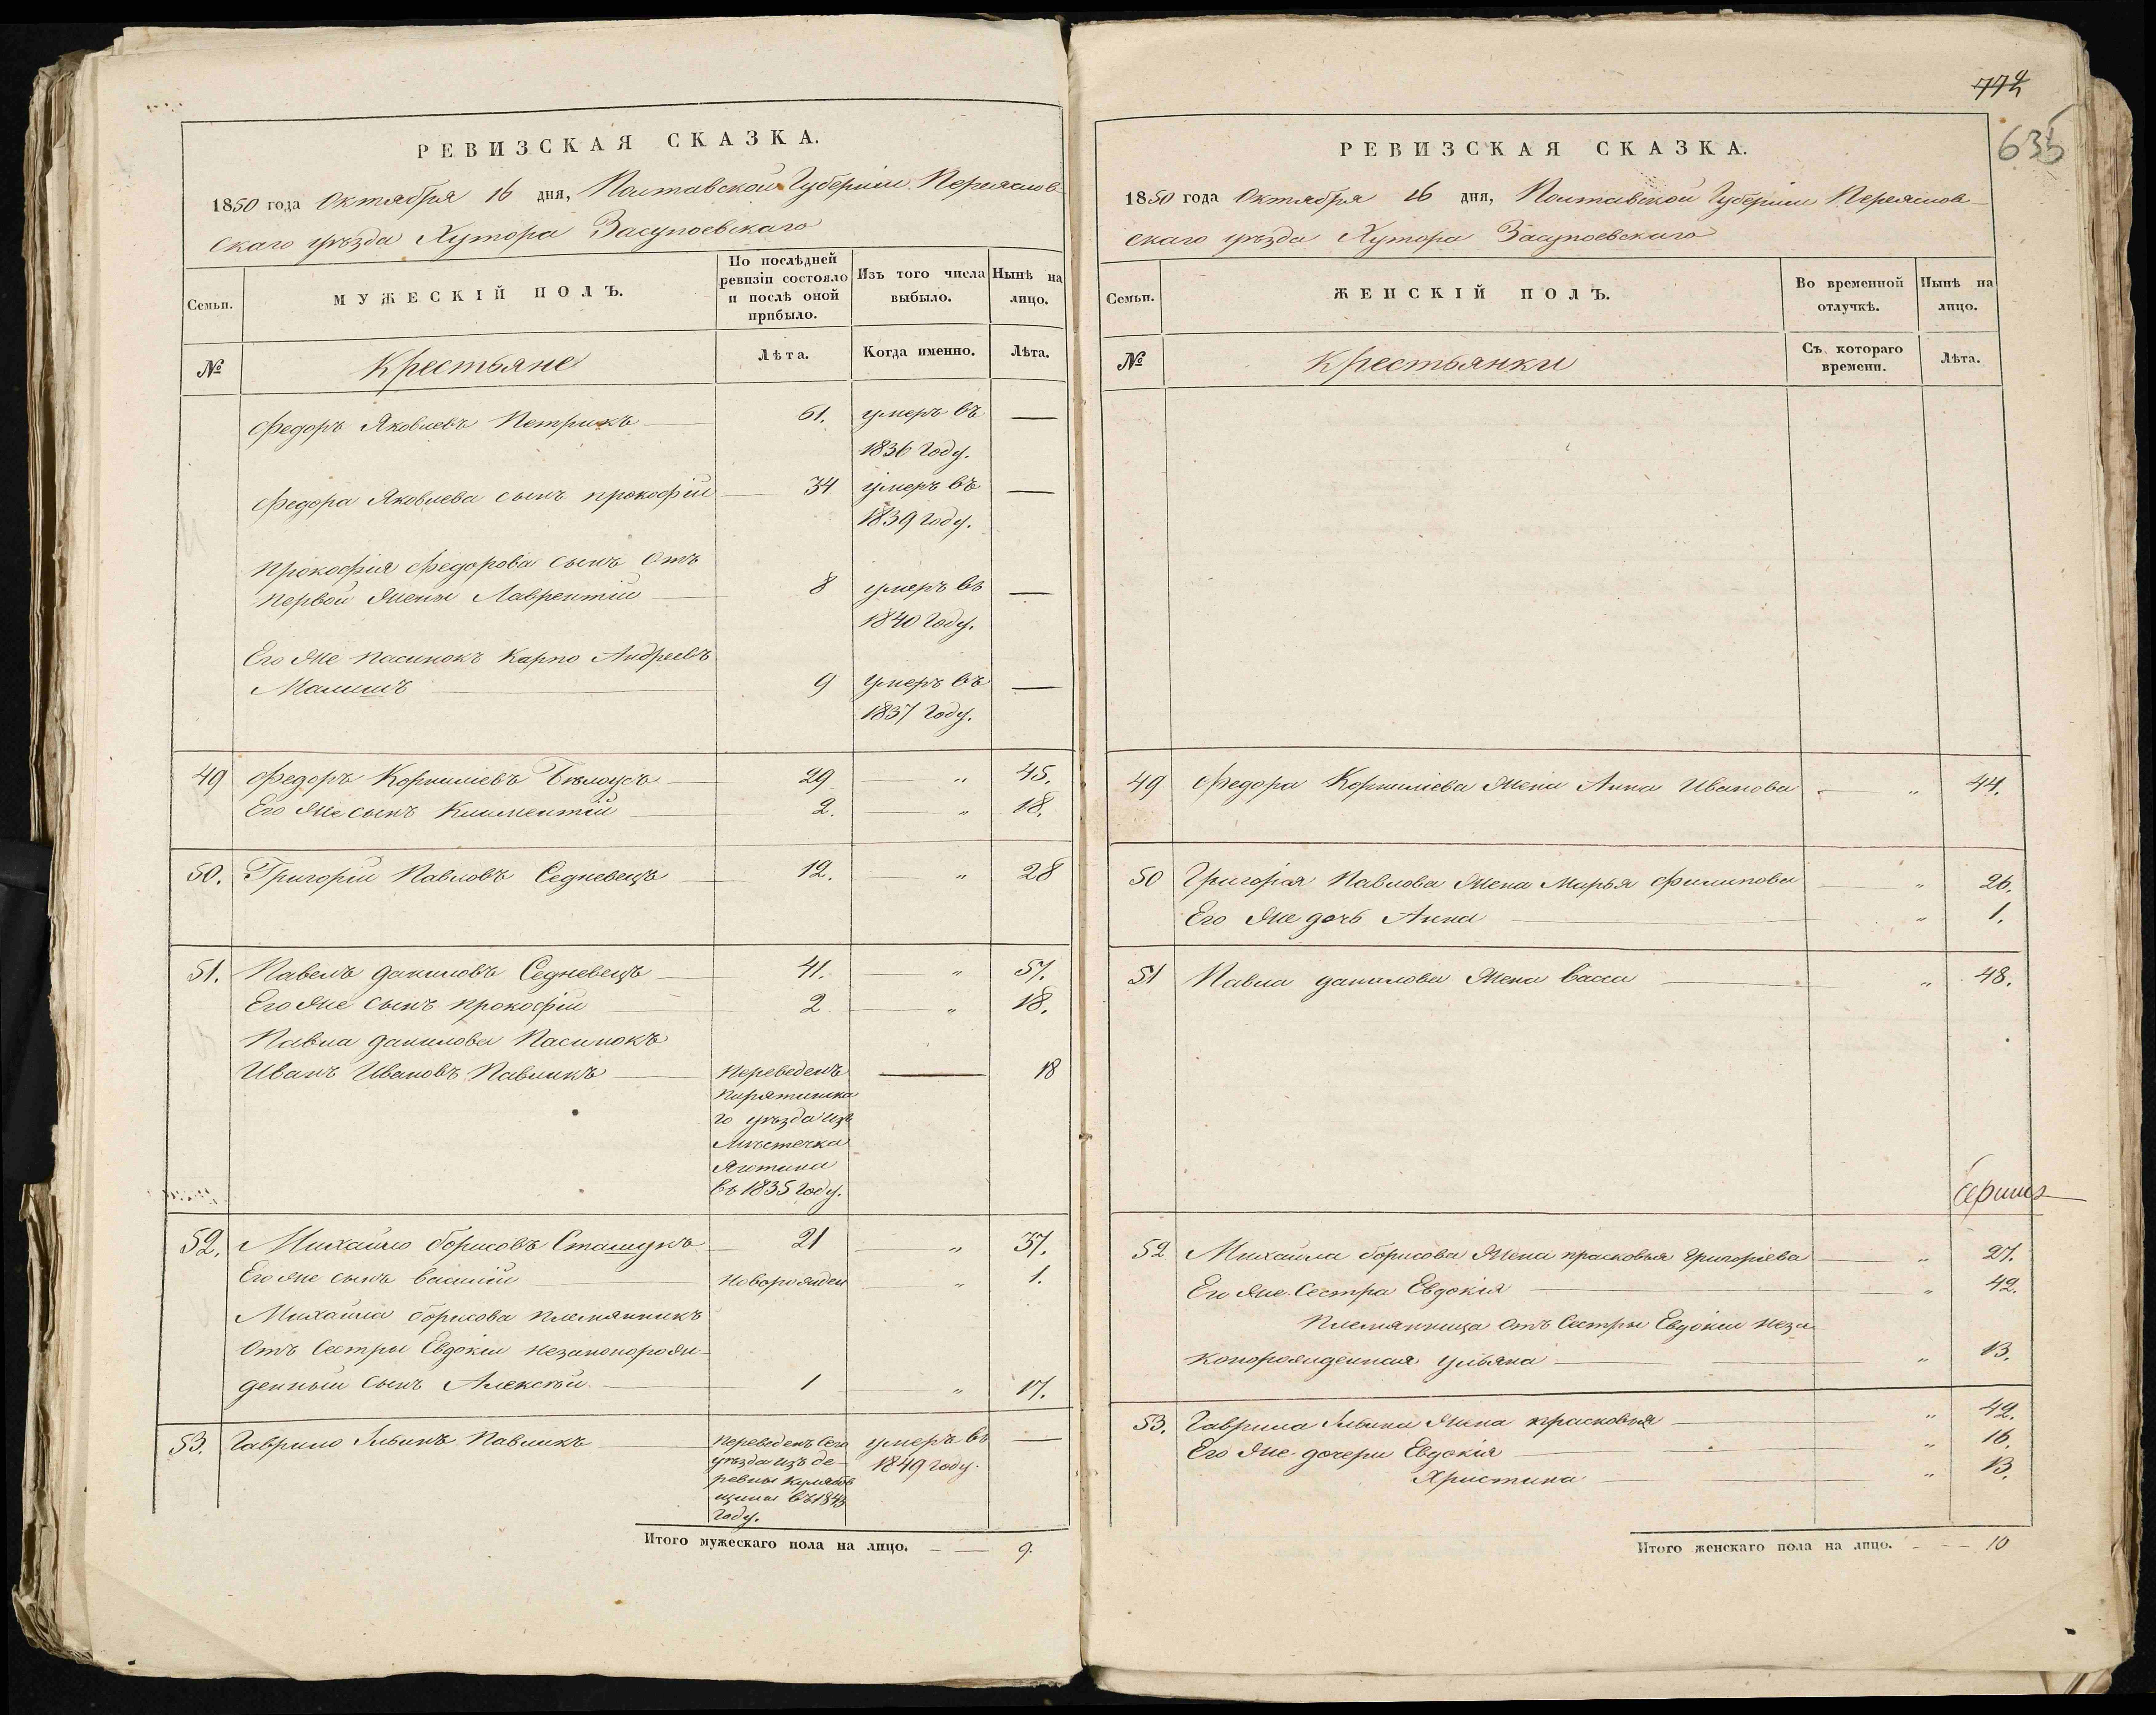 РЕВИЗСКАЯ СКАЗКА.
1850 года Октября 16 дня, Полтавской Губерніи Переяслов-
скаго уѣзда Хутора Засупоевскаго
Семьи.
МУЖЕСКІЙ ПОЛЪ.
По послѣдней
ревизіи состояло
и послѣ оной
прибыло.
Изъ того числа
выбыло.
Нынѣ на
лицо.
№
Крестьяне
Лѣта.
Когда именно.
Лѣта.
Федоръ Яковлевъ Петрикъ 61. умеръ въ —
1836 году.
Федора Яковлева сынъ прокофій 34 умеръ въ —
1839 году.
Прокофія Федорова сынъ Отъ
первой жены Лаврентій 8 умеръ въ —
1840 году.
Его же пасинокъ Карпо Андреевъ
Малишъ 9 умеръ въ —
1837 году.
49 Федоръ Корниліевъ Бѣлоусъ 29 — „ 45.
Его же сынъ Климентій 2. — „ 18.
50. Григорій Павловъ Седневецъ 12. — „ 28
51. Павелъ даниловъ Седневецъ 41. — „ 57.
Его же сынъ прокофій 2 — „ 18.
Павла данилова Пасинокъ
Иванъ Ивановъ Павликъ Переведенъ — 18
Пирятинска
го уѣзда изъ
Мѣстечка
Яготина
въ 1835 году.
52. Михайло борисовъ Сташукъ 21 — „ 37.
Его же сынъ василій новорожден „ 1.
Михайла борисова племянникъ
Отъ Сестры Евдокіи незаконорож-
денный сынъ Алексѣй 1 — „ 17.
53. Гаврило Ильинъ Павликъ переведенъ сего умеръ въ —
уѣзда изъ де- 1849 году.
ревни
въ 1843
году.
Итого мужескаго пола на лицо. — — 9.
772
635
РЕВИЗСКАЯ СКАЗКА.
1850 года Октября 16 дня, Полтавской Губерніи Переяслов-
скаго уѣзда Хутора Засупоевскаго
Семьи.
ЖЕНСКІЙ ПОЛЪ.
Во временной
отлучкѣ.
Нынѣ на
лицо.
№
Крестьянки
Съ котораго
времени.
Лѣта.
49 Федора Корниліева жена Анна Иванова — „ 44.
50 Григорія Павлова жена Марья Филипова — „ 26.
Его же дочь Анна — „ 1.
51 Павла данилова жена васса — „ 48.
52 Михайла борисова жена прасковья Григоріева — „ 27.
Его же Сестра Евдокія — „ 42.
Племянница Отъ Сестры Евдокіи неза-
конорожденная ульяна — „ 13.
53. Гаврила Ильина жена прасковья — „ 42.
Его же дочери Евдокія — „ 16.
Христина — „ 13.
Итого женскаго пола на лицо. — — 10